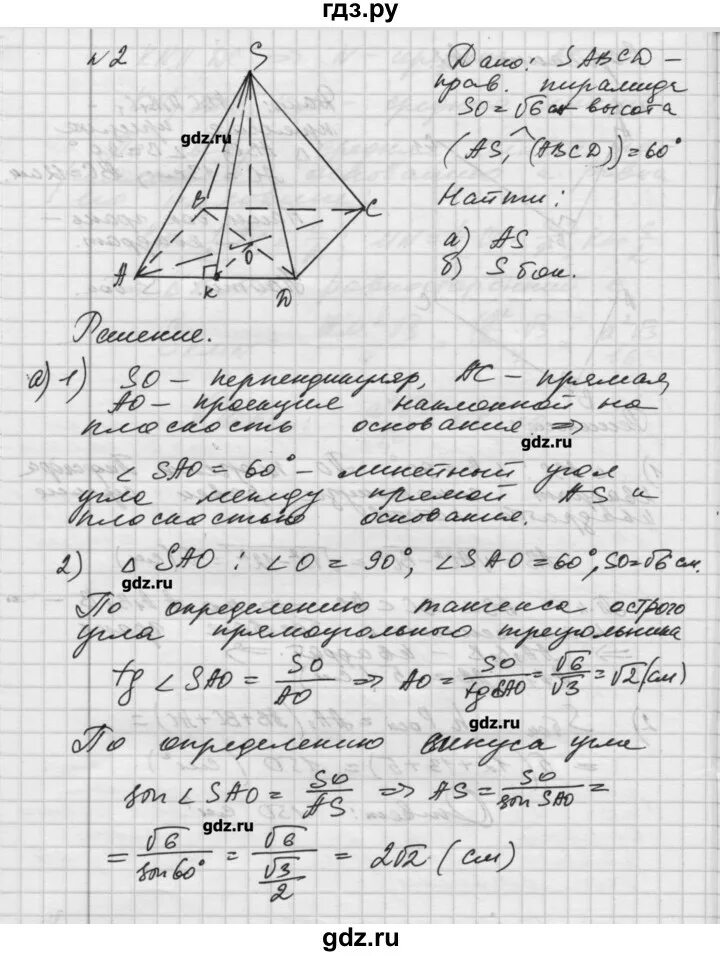 гдз.ру
№2
S
Дано: SABCD –
прав. пирамида
SO = √6 см высота
(AS, ^(ABCD)) = 60°
Найти:
а) AS
б) S бок.
gdz.ru
B
C
O
A
K
D
Решение.
а) 1) SO – перпендикуляр, AC – прямая,
AO – проекция наклонной на
плоскость основания ⇒
gdz.ru
∠ SAO = 60° – линейный угол
угла между прямой AS и
плоскостью основания.
2) △ SAO : ∠O = 90°, ∠SAO = 60°, SO = √6 см.
gdz.ru
По определению тангенса острого
угла прямоугольного треугольника
tg ∠ SAO = SO/AO ⇒ AO = SO/tg SAO = √6/√3 = √2 (см)
gdz.ru
По определению синуса угла
sin ∠ SAO = SO/AS ⇒ AS = SO/sin SAO =
gdz.ru
= √6/sin 60° = √6/(√3/2) = 2√2 (см)
gdz.ru